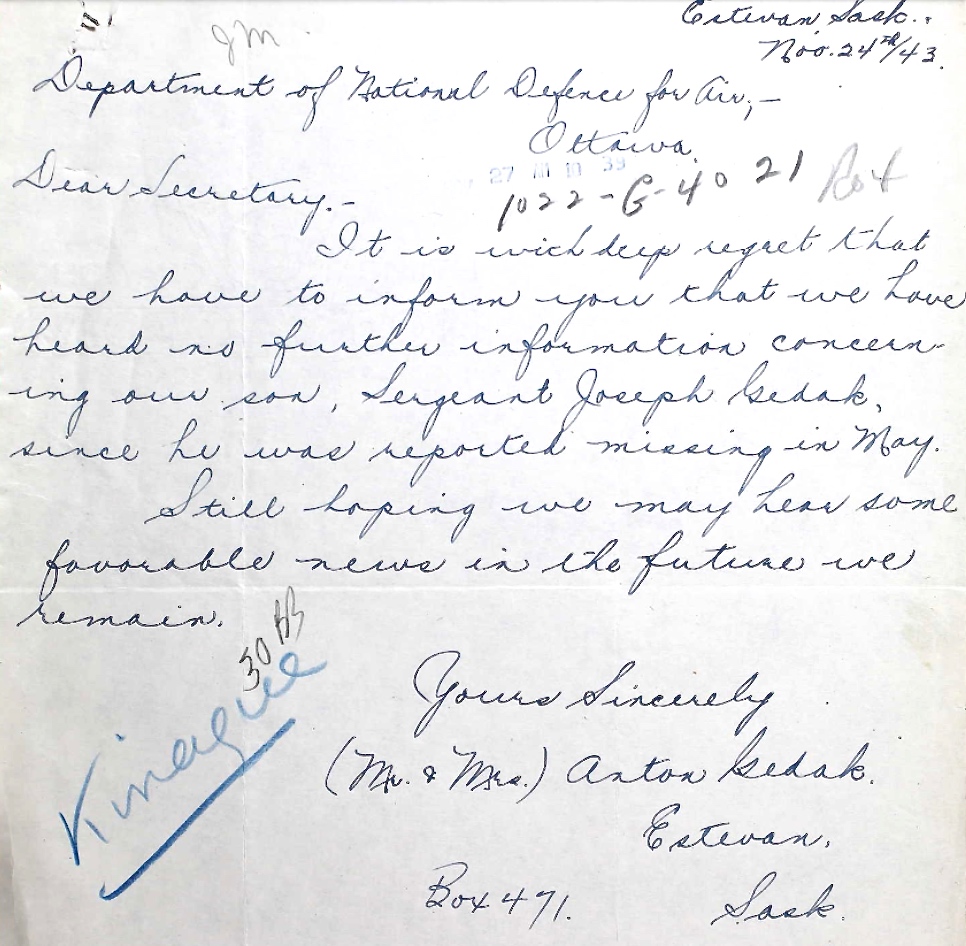 Estevan, Sask..
Nov. 24th/43.
JM
Department of National Defence for Air,-
Ottawa.
27 39
1022-G-4021
Dear Secretary.-
It is with deep regret that
we have to inform you that we have
heard no further information concern-
ing our son, Sergeant Joseph Gedak,
since he was reported missing in May.
Still hoping we may hear some
favorable news in the future we
remain.
30
Yours Sincerely
(Mr. & Mrs.) Anton Gedak.
Estevan.
Box 471.
Sask.